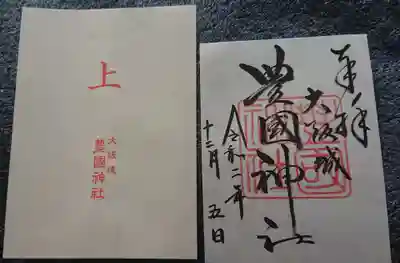 上
大坂城
豊國神社
奉拝
大坂城
豊國神社
令和二年
十二月五日